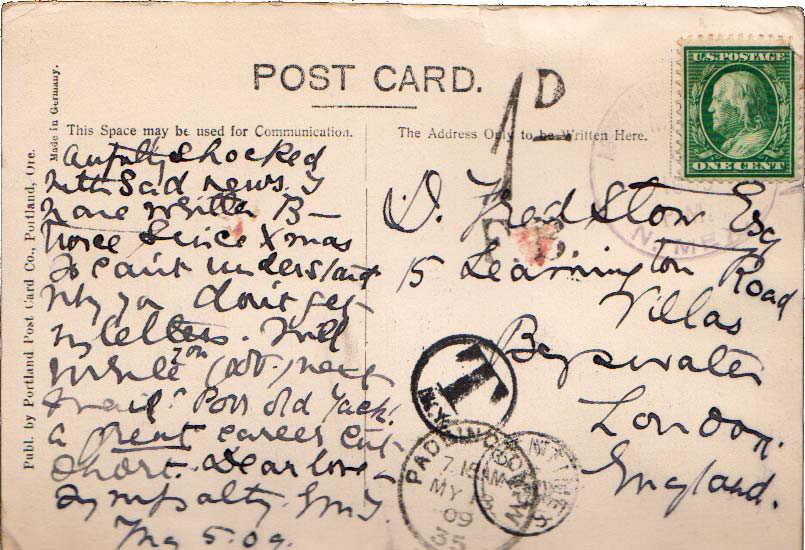 POST CARD.
This Space may be used for Communication.
The Address Only to be Written Here.
Made in Germany.
Publ. by Portland Post Card Co., Portland, Ore.
U.S. POSTAGE
ONE CENT
1D
N. MEX
Awfully shocked
with sad news. I
have written B—
twice since Xmas
& can't understand
why you don't get
my letters. Will
write you next
mail. Poor old Jack!
a great career cut
short. Dear love &
sympathy.
May 5. 09.
D. Fred Stow Esq
15 Leamington Road
Villas
Bayswater
London.
England.
T
N.Y.
PADD
7.15AM
MY 1
09
35